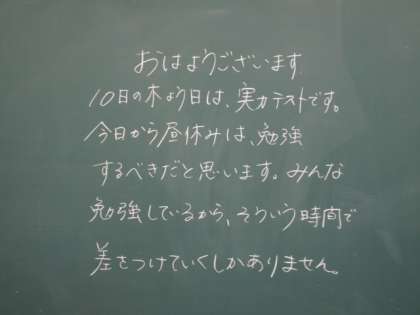 おはようございます
10日の木よう日は、実力テストです。
今日から昼休みは、勉強
するべきだと思います。みんな
勉強しているから、そういう時間で
差をつけていくしかありません。